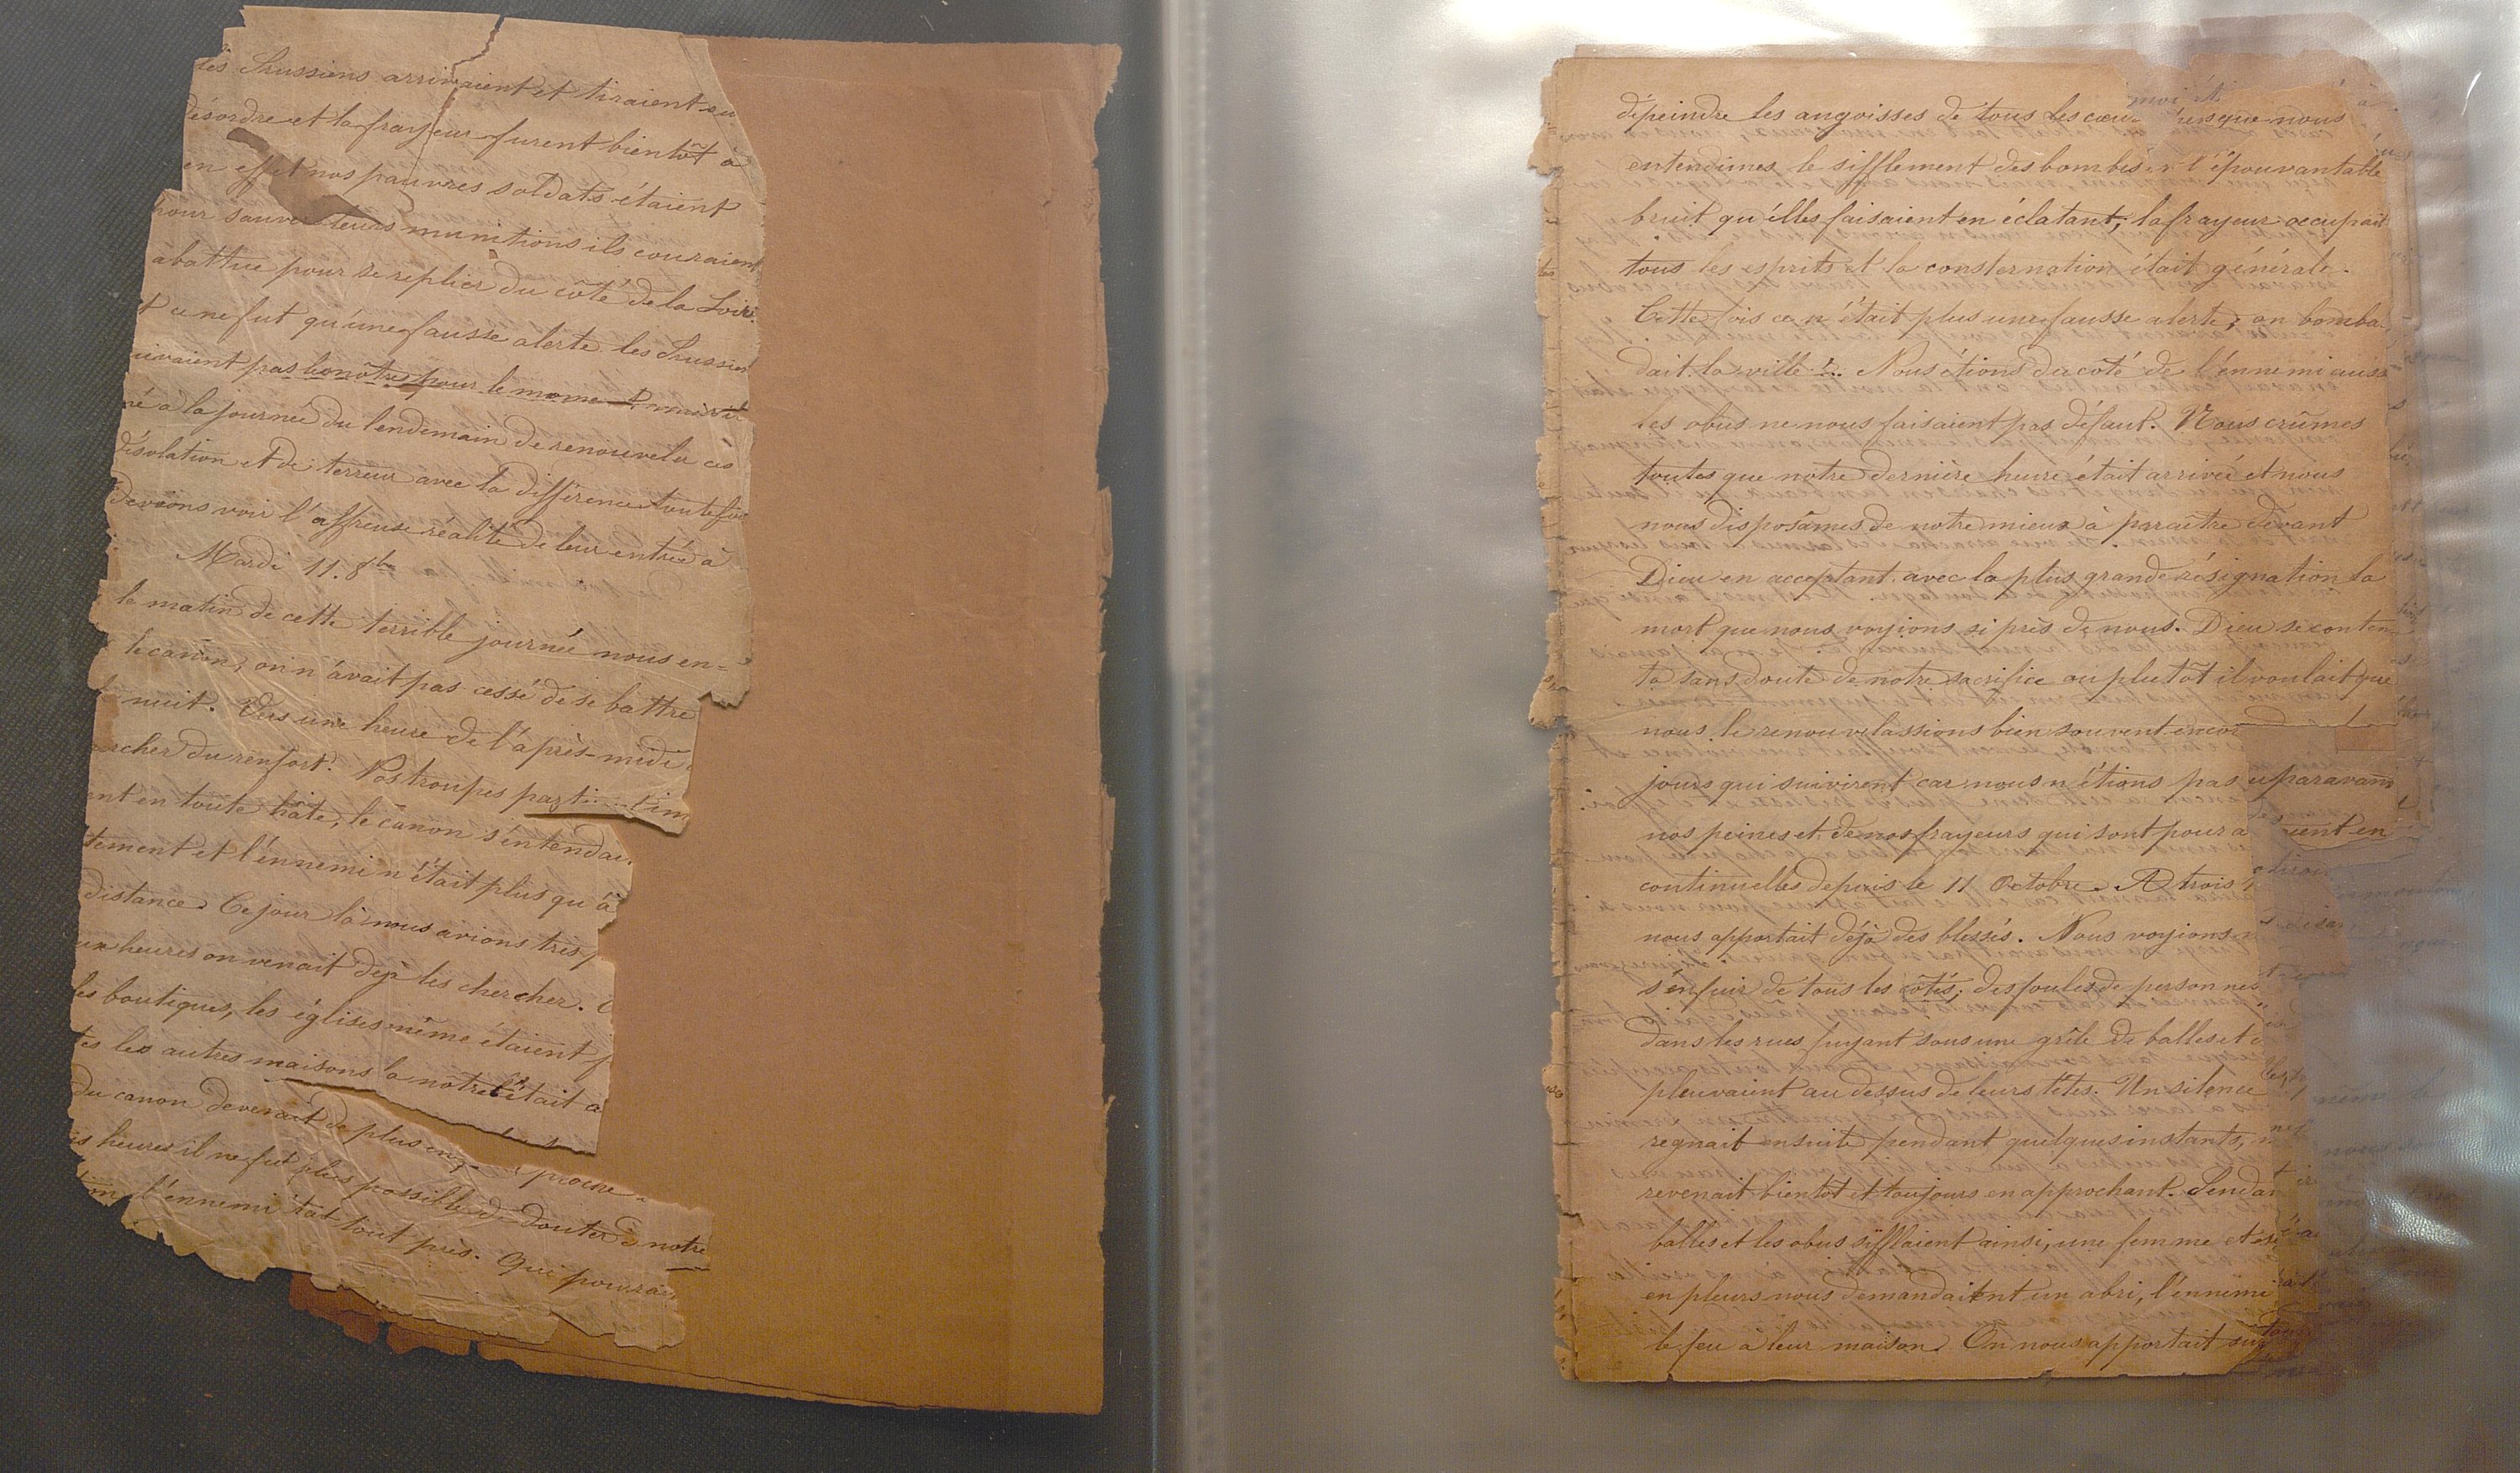 les Prussiens arrivaient et tiraient su
désordre et la frayeur furent bientôt à
en effet nos pauvres soldats étaient
pour sauver leurs munitions ils couraient
abattue pour se replier du côté de la Loire
t ce ne fut qu'une fausse alerte les Prussien
uivaient pas les nôtres pour le moment mais
né à la journée du lendemain de renouveler ces
désolation et de terreur avec la différence toutefois
devions voir l'affreuse réalité de leur entrée à
Mardi 11. 8bre
le matin de cette terrible journée nous en=
le canon, on n'avait pas cessé de se battre
nuit. Vers une heure de l'après-midi
rcher du renfort. Nos troupes
ent en toute hâte, le canon s'entendai
tement et l'ennemi n'était plus qu'à
distance. Ce jour là nous avions très
ux heures on venait dejà les chercher.
les boutiques, les églises même étaient f
tes les autres maisons la nôtre l'était a
du canon devenait de plus en
is heures il ne fut plus possible de douter notre
l'ennemi était tout près. Qui pourrai
dépeindre les angoisses de tous les cœu lorsque nous
entendîmes le sifflement des bombes et l'épouvantable
bruit qu'elles faisaient en éclatant; la frayeur occupait
tous les esprits et la consternation était générale.
Cette fois ce n'était plus une fausse alerte; on bomba-
dait la ville !.. Nous étions du côté de l'ennemi aussi
les obus ne nous faisaient pas défaut. Nous crûmes
toutes que notre dernière heure était arrivée et nous
nous disposâmes de notre mieux à paraître devant
Dieu en acceptant avec la plus grande résignation la
mort que nous voyions si près de nous. Dieu se conten
ta sans doute de notre sacrifice ou plutôt il voulait que
nous le renouvelassions bien souvent encor
jours qui suivirent car nous n'étions pas uparavant
nos peines et de nos frayeurs qui sont pour a
continuelles depuis le 11 Octobre. A trois h
nous apportait déjà des blessés. Nous voyions n
s'enfuir de tous les côtés; des foules de personnes
dans les rues fuyant sous une grêle de balles et
pleuvaient au dessus de leurs têtes. Un silence
regnait ensuite pendant quelques instants,
revenait bientôt et toujours en approchant. Pendan
balles et les obus sifflaient ainsi, une femme et
en pleurs nous demandaient un abri, l'ennemi
le feu a leur maison. On nous apportait sur